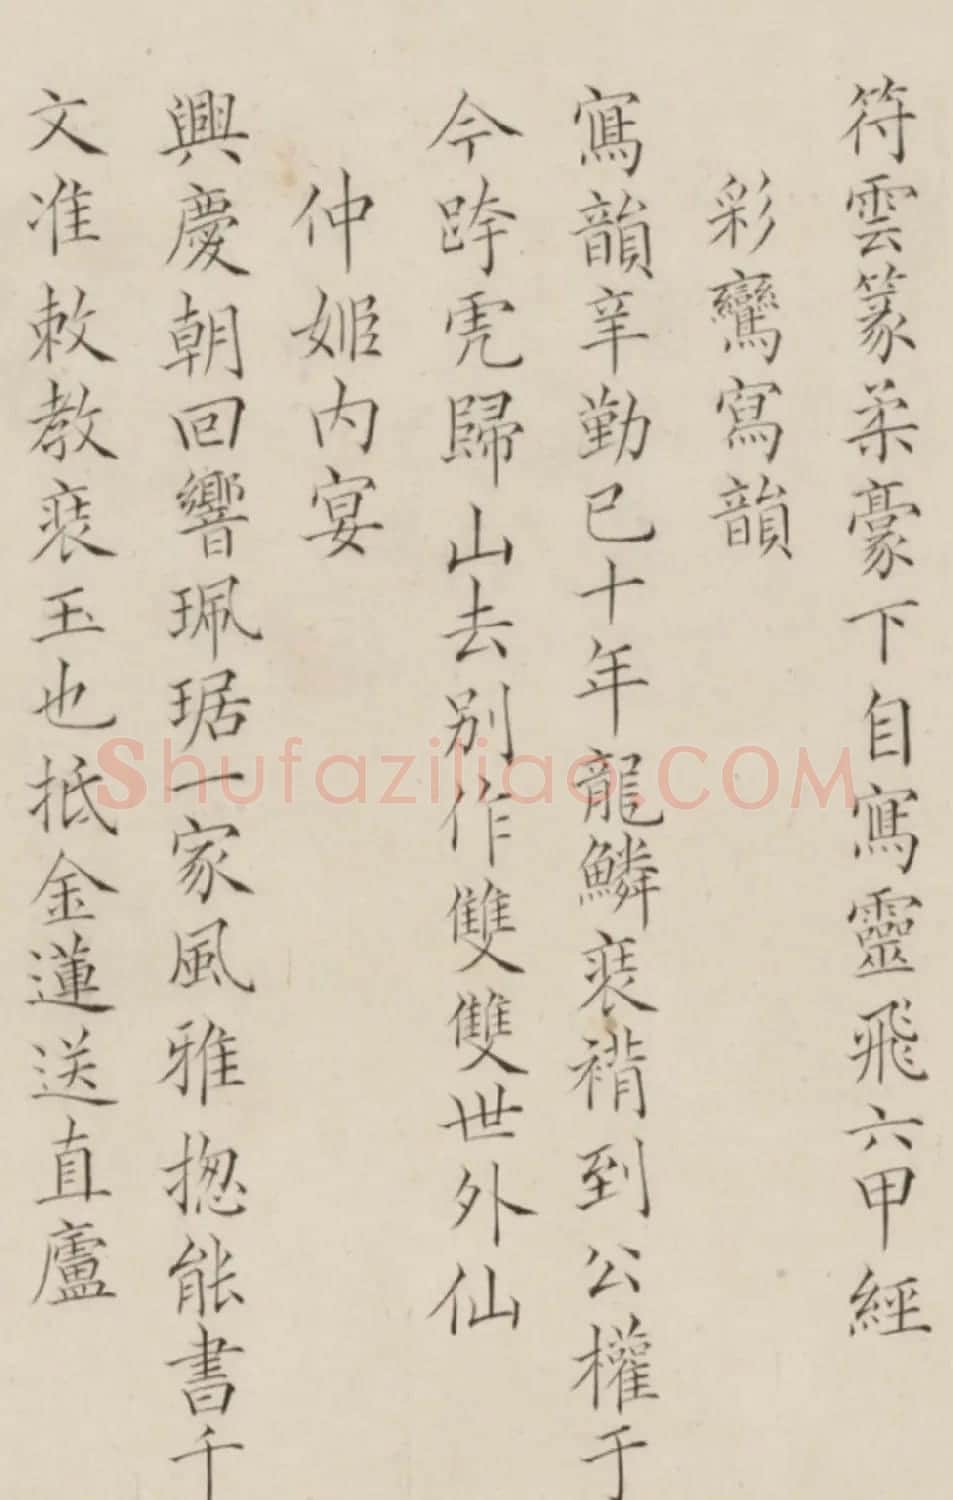 符雲篆柔豪下自寫靈飛六甲經
彩鸞寫韻
寫韻辛勤已十年龍鱗裝褙到公權于
今跨虎歸山去別作雙雙世外仙
仲姬内宴
興慶朝回響珮琚一家風雅揔能書千
文准敕教裝玉也抵金蓮送直廬
Shufaziliao.COM